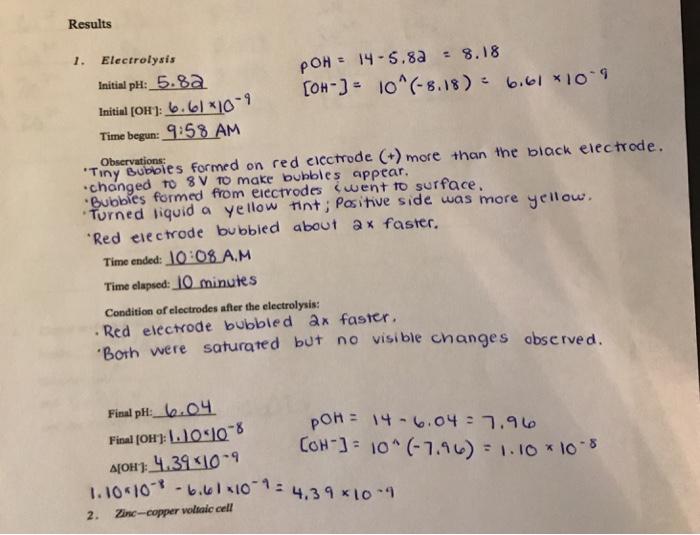 Results
1. Electrolysis
pOH = 14 - 5.82 = 8.18
Initial pH: 5.82
[OH-] = 10^(-8.18) = 6.61 × 10-9
Initial [OH-]: 6.61×10-9
Time begun: 9:58 AM
Observations:
• Tiny Bubbles formed on red electrode (+) more than the black electrode.
• changed to 8V to make bubbles appear.
• Bubbles formed from electrodes & went to surface.
• Turned liquid a yellow tint; Positive side was more yellow.
• Red electrode bubbled about 2x faster.
Time ended: 10:08 A.M
Time elapsed: 10 minutes
Condition of electrodes after the electrolysis:
• Red electrode bubbled 2x faster.
• Both were saturated but no visible changes observed.
Final pH: 6.04
pOH = 14 - 6.04 = 7.96
Final [OH-]: 1.10×10-8
[OH-] = 10^(-7.96) = 1.10 × 10-8
Δ[OH-]: 4.39×10-9
1.10×10-8 - 6.61×10-9 = 4.39×10-9
2. Zinc—copper voltaic cell